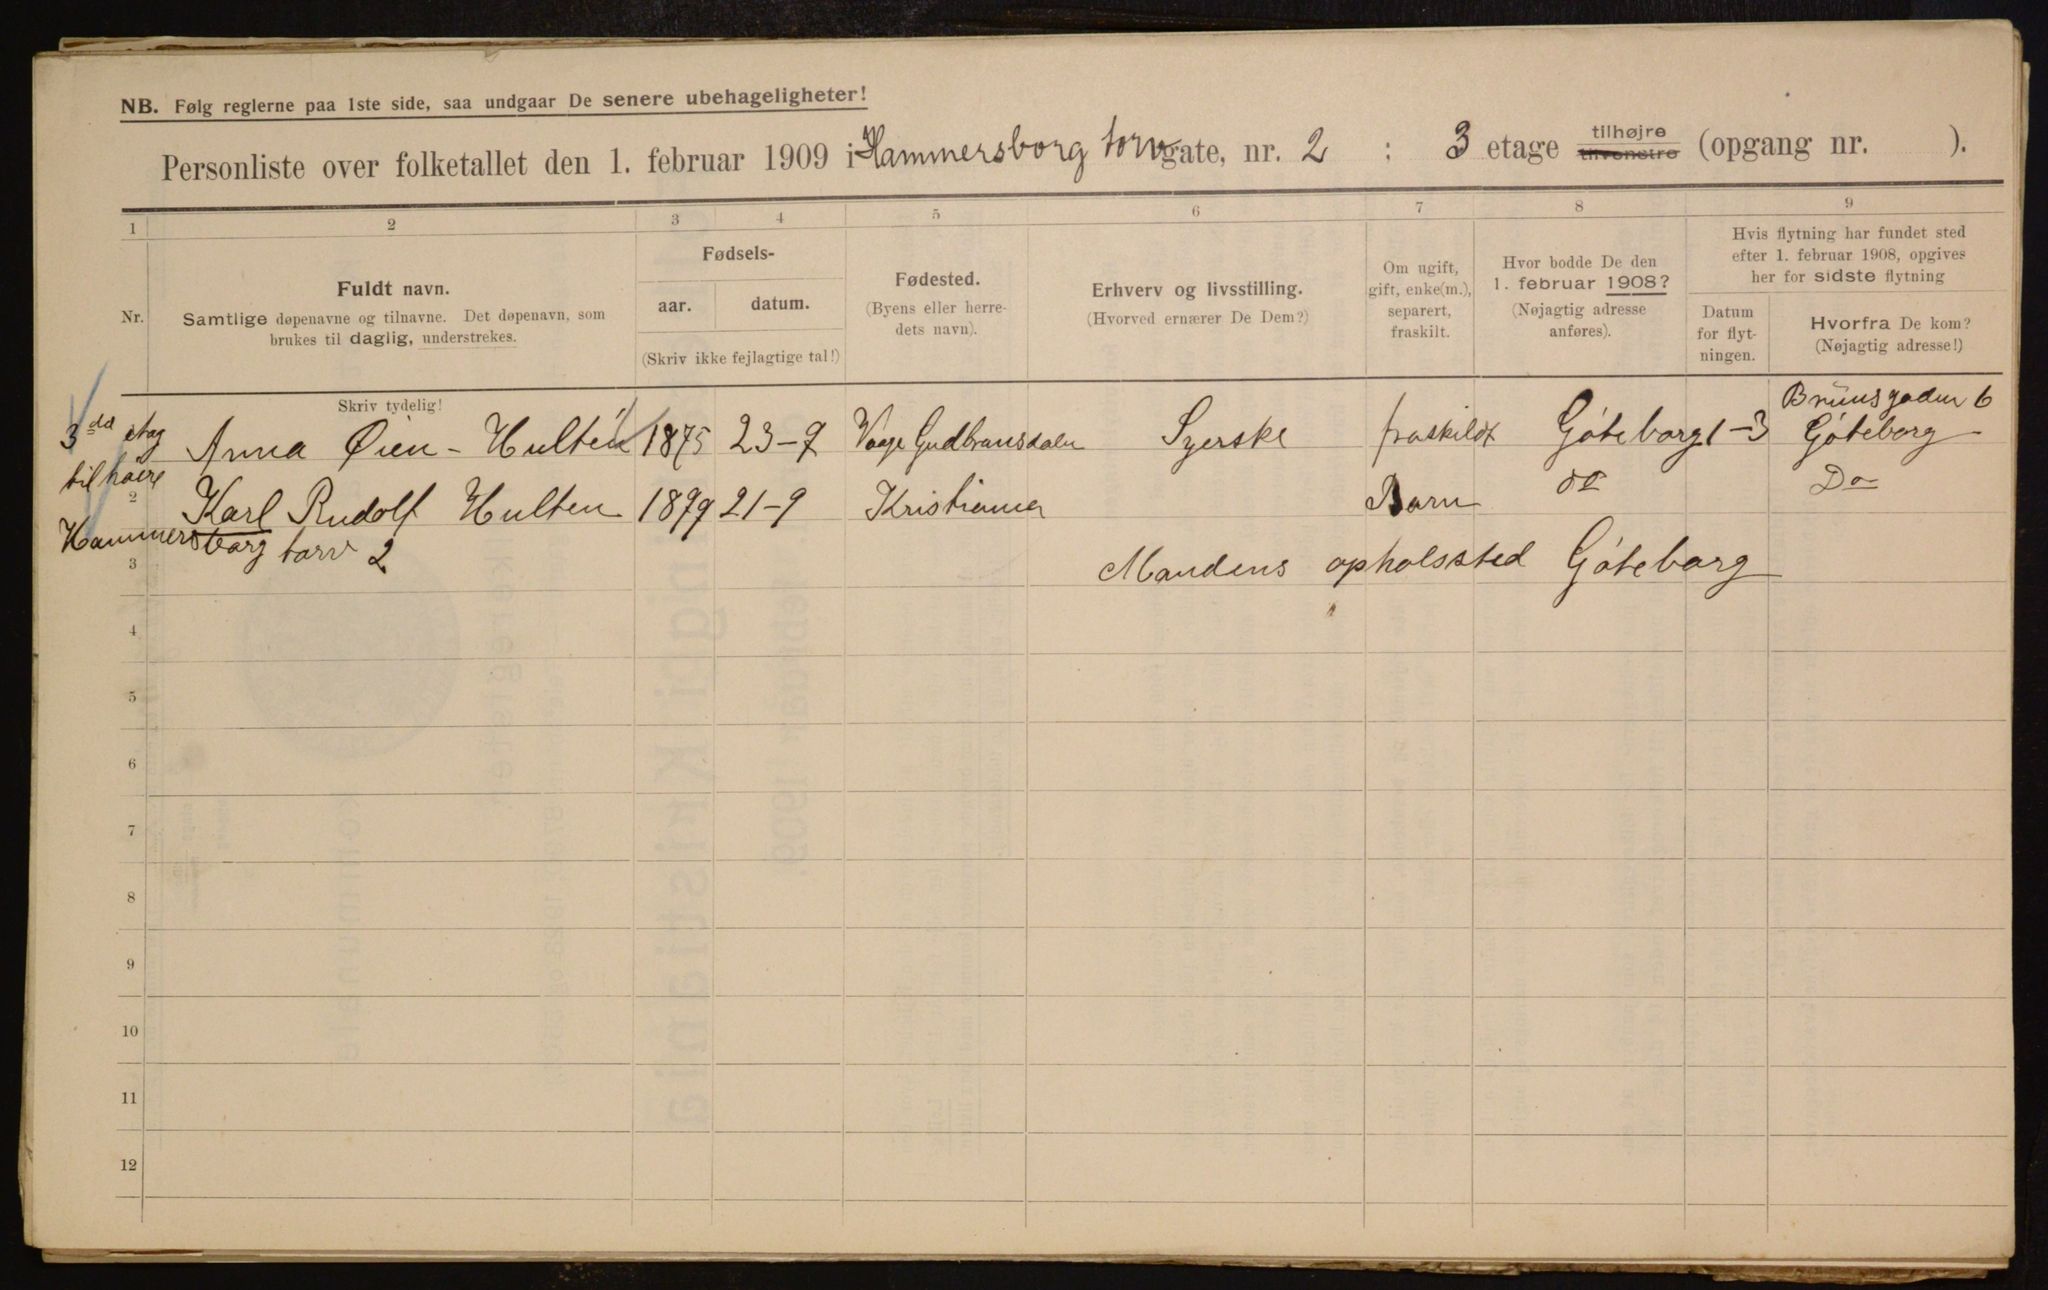 NB. Følg reglerne paa 1ste side, saa undgaar De senere ubehageligheter!
Personliste over folketallet den 1. februar 1909 i Hammersborg torv gate, nr. 2 : 3 etage tilhøjre tilvenstre (opgang nr. ).
1 2 3 4 5 6 7 8 9
Nr.
Fuldt navn.
Samtlige døpenavne og tilnavne. Det døpenavn, som
brukes til daglig, understrekes.
Skriv tydelig!
Fødsels-
aar. datum.
(Skriv ikke fejlagtige tal!)
Fødested.
(Byens eller herre-
dets navn).
Erhverv og livsstilling.
(Hvorved ernærer De Dem?)
Om ugift,
gift, enke(m.),
separert,
fraskilt.
Hvor bodde De den
1. februar 1908?
(Nøjagtig adresse
anføres).
Hvis flytning har fundet sted
efter 1. februar 1908, opgives
her for sidste flytning
Datum
for flyt-
ningen.
Hvorfra De kom?
(Nøjagtig adresse!)
3dd etag
til høire
Hammersborg torv 2
Anna Øien - Hultén 1875 23-9 Vaage Gudbransdalen Syerske fraskildt Göteborg 1-3 Göteborg
2 Karl Rudolf Hulten 1899 21-9 Kristiania Barn do Do
3 Mandens opholssted Göteborg
4
5
6
7
8
9
10
11
12